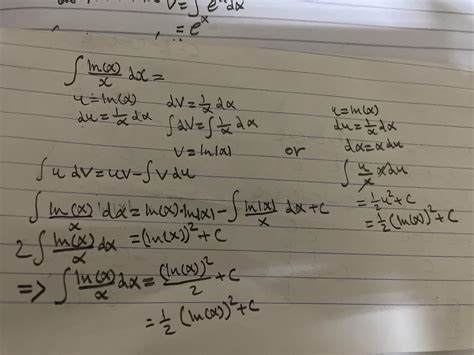 V=∫e^x dx
= e^x
∫ ln(x)/x dx =
u=ln(x) dV=1/x dx
du=1/x dx ∫dV=∫1/x dx
V=ln|x|
or
u=ln(x)
du=1/x dx
dx=x du
∫ u/x x du
=1/2 u²+C
=1/2 (ln(x))²+C
∫u dV=uV-∫V du
∫ ln(x)/x dx=ln(x)·ln|x|-∫ ln|x|/x dx+C
2∫ ln(x)/x dx =(ln(x))²+C
=> ∫ ln(x)/x dx=(ln(x))²/2+C
=1/2 (ln(x))²+C